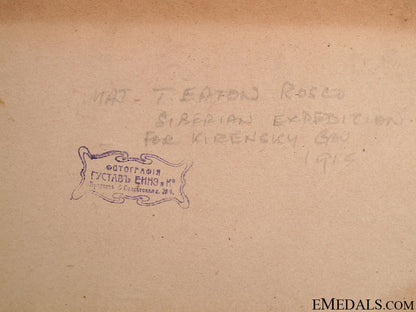 MAJ. T. EATON ROSCO
SIBERIAN EXPEDITION.
FOR KIRENSKY GOV
1919
ФОТОГРАФІЯ
ГУСТАВЪ ЕННЭ и Кº
EMEDALS.COM